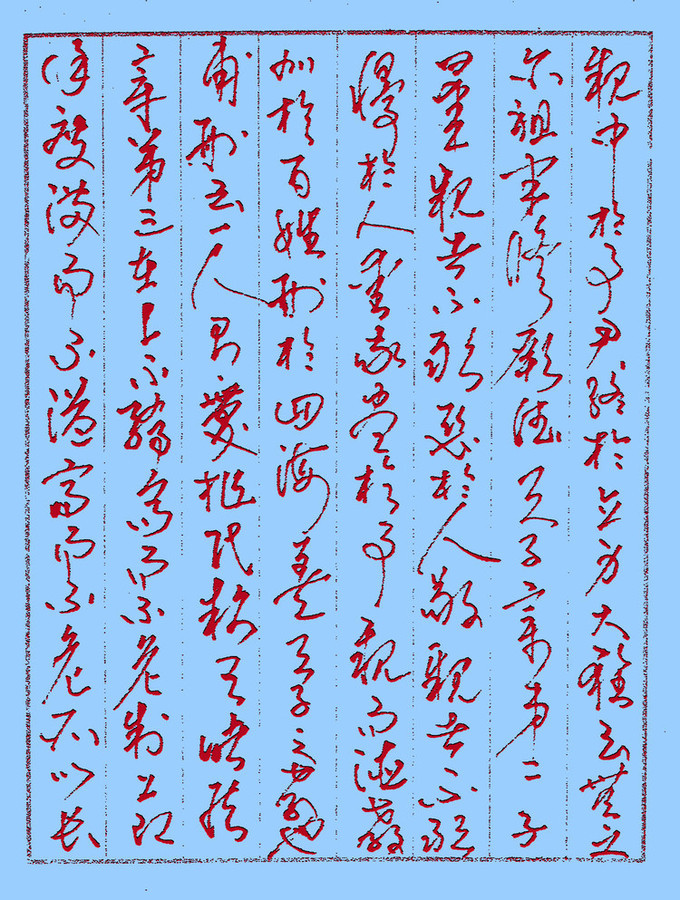 親中於事君終於立身大雅云無念
尒祖聿脩厥德天子章第二子
曰愛親者不敢惡於人敬親者不敢
慢於人愛敬盡於事親而德教
加於百姓刑於四海蓋天子之孝也
甫刑云一人有慶兆民賴之諸侯
章第三在上不驕高而不危制節
謹度滿而不溢高而不危所以長